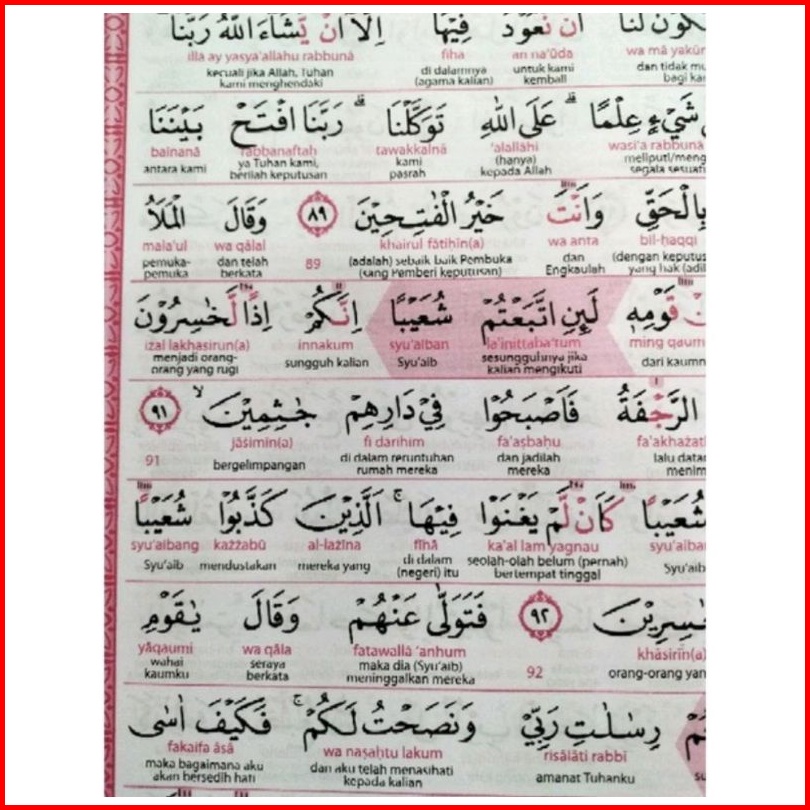 كُوْنُ لَنَآ اَنْ نَّعُوْدَ فِيْهَآ اِلَّآ اَنْ يَّشَاۤءَ اللّٰهُ رَبُّنَا
illa ay yasya'allahu rabbunā fiha an na'ūda wa mā yakūn
kecuali jika Allah, Tuhan kami menghendaki di dalamnya (agama kalian) untuk kami kembali dan tidak mu bagi kam
شَيْءٍ عِلْمًاۗ عَلَى اللّٰهِ تَوَكَّلْنَاۗ رَبَّنَا افْتَحْ بَيْنَنَا
bainanā rabbanaftaḥ tawakkalnā 'alallāhi wasi'a rabbunā
antara kami ya Tuhan kami, berilah keputusan kami pasrah (hanya) kepada Allah meliputi/meng segala sesuatu
بِالْحَقِّ وَاَنْتَ خَيْرُ الْفٰتِحِيْنَ ٨٩ وَقَالَ الْمَلَاُ
mala'ul wa qālal khairul fātiḥīn(a) wa anta bil-ḥaqqi
pemuka-pemuka dan telah berkata 89 (adalah) sebaik baik Pembuka (yang Pemberi keputusan) dan Engkaulah (dengan keputus yang hak (adil
نْ قَوْمِهٖ لَىِٕنِ اتَّبَعْتُمْ شُعَيْبًا اِنَّكُمْ اِذًا لَّخٰسِرُوْنَ
izal lakhasirun(a) innakum syu'aiban la'inittaba'tum ming qaum
menjadi orang-orang yang rugi sungguh kalian Syu'aib sesungguhnya jika kalian mengikuti dari kaumn
الرَّجْفَةُ فَاَصْبَحُوْا فِيْ دَارِهِمْ جٰثِمِيْنَۙ ٩١
jāsimīn(a) fi darihim fa'aṣbahu fa'akhażat
91 bergelimpangan di dalam reruntuhan rumah mereka dan jadilah mereka lalu data menim
شُعَيْبًا كَاَنْ لَّمْ يَغْنَوْا فِيْهَاۚ اَلَّذِيْنَ كَذَّبُوْا شُعَيْبًا
syu'aibang każżabū al-lażīna fīhā ka'al lam yagnau syu'aiba
Syu'aib mendustakan mereka yang di dalam (negeri) itu seolah-olah belum (pernah) bertempat tinggal Syu'aib
خٰسِرِيْنَ ٩٢ فَتَوَلّٰى عَنْهُمْ وَقَالَ يٰقَوْمِ
yāqaumi wa qāla fatawallā 'anhum khāsirīn(a)
wahai kaumku seraya berkata maka dia (Syu'aib) meninggalkan mereka 92 orang-orang yan
رِسٰلٰتِ رَبِّيْ وَنَصَحْتُ لَكُمْۚ فَكَيْفَ اٰسٰى
fakaifa āsā wa naṣaḥtu lakum risālāti rabbī
maka bagaimana aku akan bersedih hati dan aku telah menasihati kepada kalian amanat Tuhanku